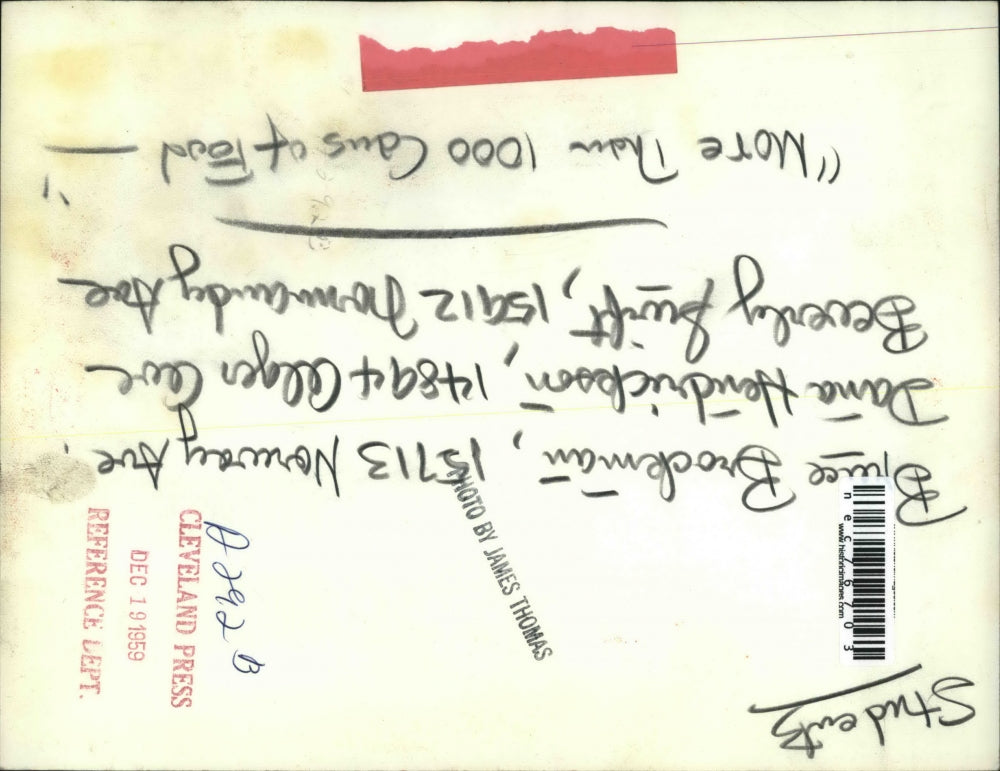 Students
Bruce Brockman, 15713 Norway Ave.
Dana Hendrickson, 14894 Alger Ave
Beverly Swift, 15912 Normandy Ave
"More Than 1000 Cans of Food — "
PHOTO BY JAMES THOMAS
A 292 B
CLEVELAND PRESS
DEC 19 1959
REFERENCE DEPT.
nec76703
www.historicimages.com